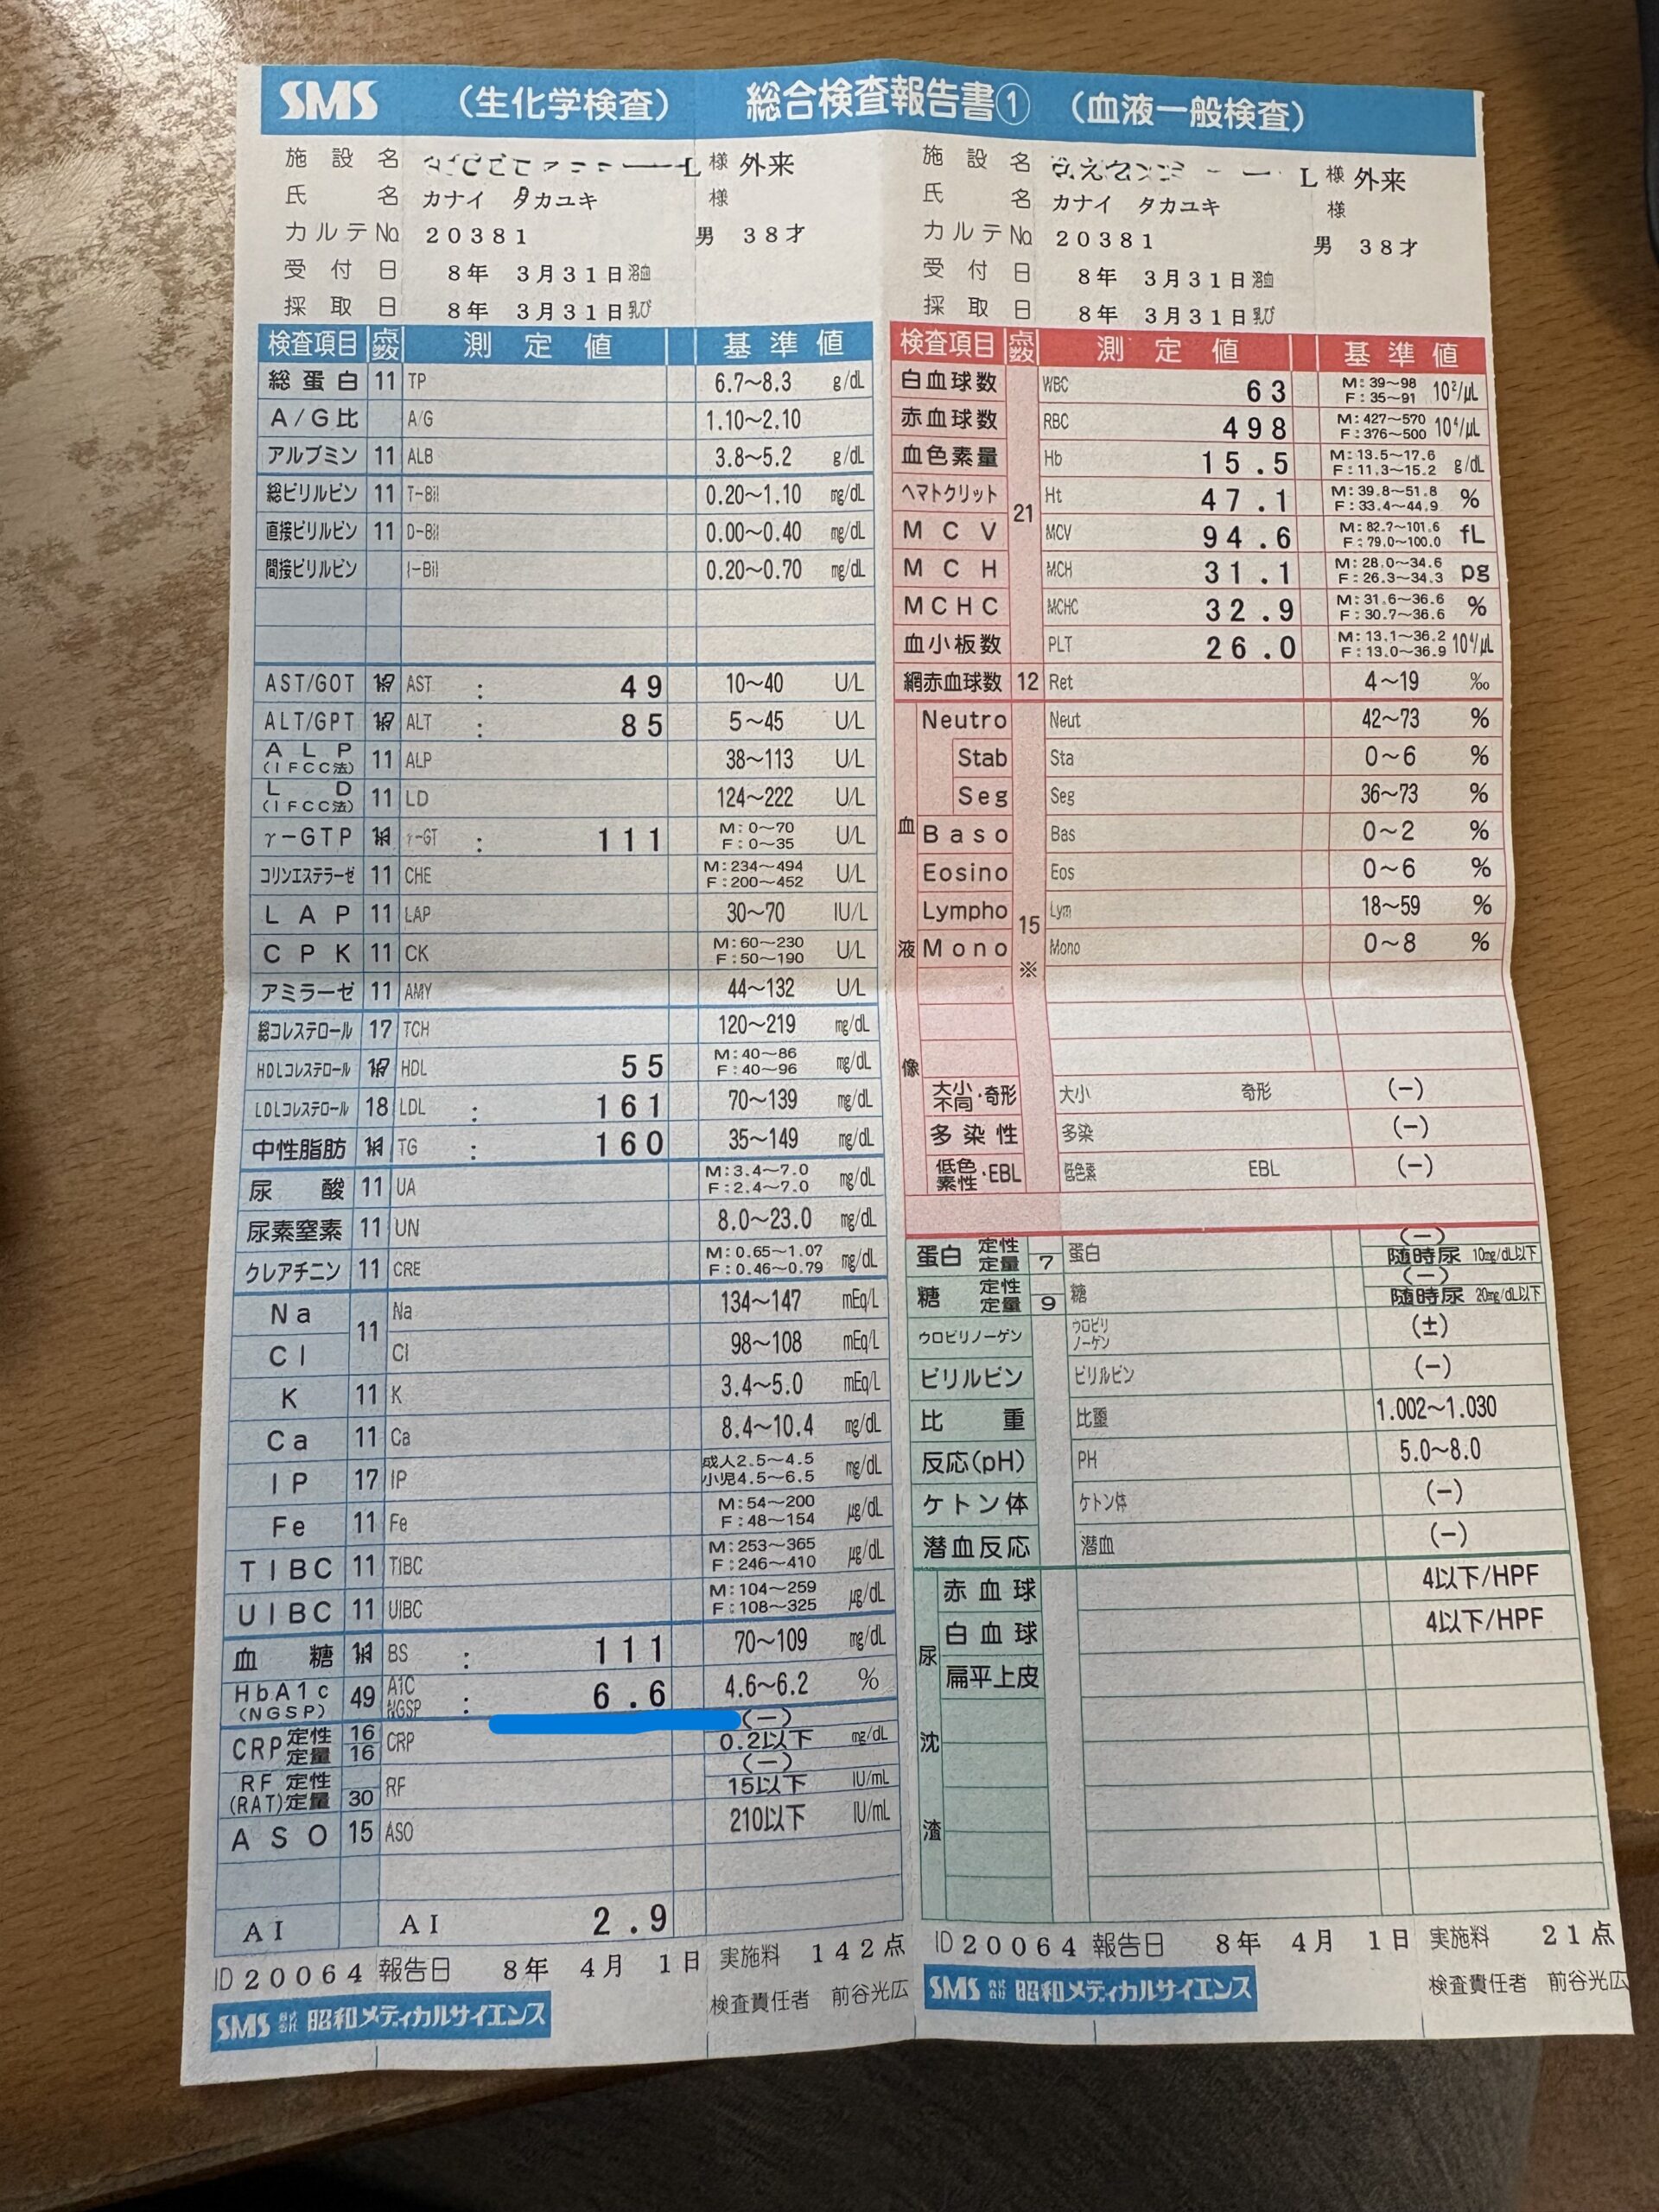 SMS (生化学検査) 総合検査報告書① (血液一般検査)
施設名 L様 外来
氏名 カナイ タカユキ 様
カルテNo. 20381 男 38才
受付日 8年 3月31日 溶血
採取日 8年 3月31日 乳び
検査項目 点数 測定値 基準値
総蛋白 11 TP 6.7〜8.3 g/dL
A/G比 A/G 1.10〜2.10
アルブミン 11 ALB 3.8〜5.2 g/dL
総ビリルビン 11 T-Bil 0.20〜1.10 mg/dL
直接ビリルビン 11 D-Bil 0.00〜0.40 mg/dL
間接ビリルビン I-Bil 0.20〜0.70 mg/dL
AST/GOT AST : 49 10〜40 U/L
ALT/GPT ALT : 85 5〜45 U/L
ALP (IFCC法) 11 ALP 38〜113 U/L
LD (IFCC法) 11 LD 124〜222 U/L
γ-GTP γ-GT : 111 M:0〜70 F:0〜35 U/L
コリンエステラーゼ 11 CHE M:234〜494 F:200〜452 U/L
LAP 11 LAP 30〜70 IU/L
CPK 11 CK M:60〜230 F:50〜190 U/L
アミラーゼ 11 AMY 44〜132 U/L
総コレステロール 17 TCH 120〜219 mg/dL
HDLコレステロール HDL 55 M:40〜86 F:40〜96 mg/dL
LDLコレステロール 18 LDL : 161 70〜139 mg/dL
中性脂肪 TG : 160 35〜149 mg/dL
尿酸 11 UA M:3.4〜7.0 F:2.4〜7.0 mg/dL
尿素窒素 11 UN 8.0〜23.0 mg/dL
クレアチニン 11 CRE M:0.65〜1.07 F:0.46〜0.79 mg/dL
Na 11 Na 134〜147 mEq/L
Cl Cl 98〜108 mEq/L
K 11 K 3.4〜5.0 mEq/L
Ca 11 Ca 8.4〜10.4 mg/dL
IP 17 IP 成人2.5〜4.5 小児4.5〜6.5 mg/dL
Fe 11 Fe M:54〜200 F:48〜154 μg/dL
TIBC 11 TIBC M:253〜365 F:246〜410 μg/dL
UIBC 11 UIBC M:104〜259 F:108〜325 μg/dL
血糖 BS : 111 70〜109 mg/dL
HbA1c (NGSP) 49 A1C NGSP : 6.6 4.6〜6.2 %
CRP 定性 16 定量 16 CRP (−) 0.2以下 mg/dL
RF 定性 (RAT)定量 30 RF (−) 15以下 IU/mL
ASO 15 ASO 210以下 IU/mL
AI AI 2.9
ID 20064 報告日 8年 4月 1日 実施料 142点
検査責任者 前谷光広
SMS 株式会社 昭和メディカルサイエンス
施設名 L様 外来
氏名 カナイ タカユキ 様
カルテNo. 20381 男 38才
受付日 8年 3月31日 溶血
採取日 8年 3月31日 乳び
検査項目 点数 測定値 基準値
白血球数 21 WBC 63 M:39〜98 F:35〜91 10²/μL
赤血球数 RBC 498 M:427〜570 F:376〜500 10⁴/μL
血色素量 Hb 15.5 M:13.5〜17.6 F:11.3〜15.2 g/dL
ヘマトクリット Ht 47.1 M:39.8〜51.8 F:33.4〜44.9 %
MCV MCV 94.6 M:82.7〜101.6 F:79.0〜100.0 fL
MCH MCH 31.1 M:28.0〜34.6 F:26.3〜34.3 pg
MCHC MCHC 32.9 M:31.6〜36.6 F:30.7〜36.6 %
血小板数 PLT 26.0 M:13.1〜36.2 F:13.0〜36.9 10⁴/μL
網赤血球数 12 Ret 4〜19 ‰
血液像 15 ※
Neutro Neut 42〜73 %
Stab Sta 0〜6 %
Seg Seg 36〜73 %
Baso Bas 0〜2 %
Eosino Eos 0〜6 %
Lympho Lym 18〜59 %
Mono Mono 0〜8 %
大小不同・奇形 大小 奇形 (−)
多染性 多染 (−)
低色素性・EBL 低色素 EBL (−)
蛋白 定性 定量 7 蛋白 (−) 随時尿 10mg/dL以下
糖 定性 定量 9 糖 (−) 随時尿 20mg/dL以下
ウロビリノーゲン ウロビリノーゲン (±)
ビリルビン ビリルビン (−)
比重 比重 1.002〜1.030
反応(pH) PH 5.0〜8.0
ケトン体 ケトン体 (−)
潜血反応 潜血 (−)
尿沈渣
赤血球 4以下/HPF
白血球 4以下/HPF
扁平上皮
ID 20064 報告日 8年 4月 1日 実施料 21点
検査責任者 前谷光広
SMS 株式会社 昭和メディカルサイエンス